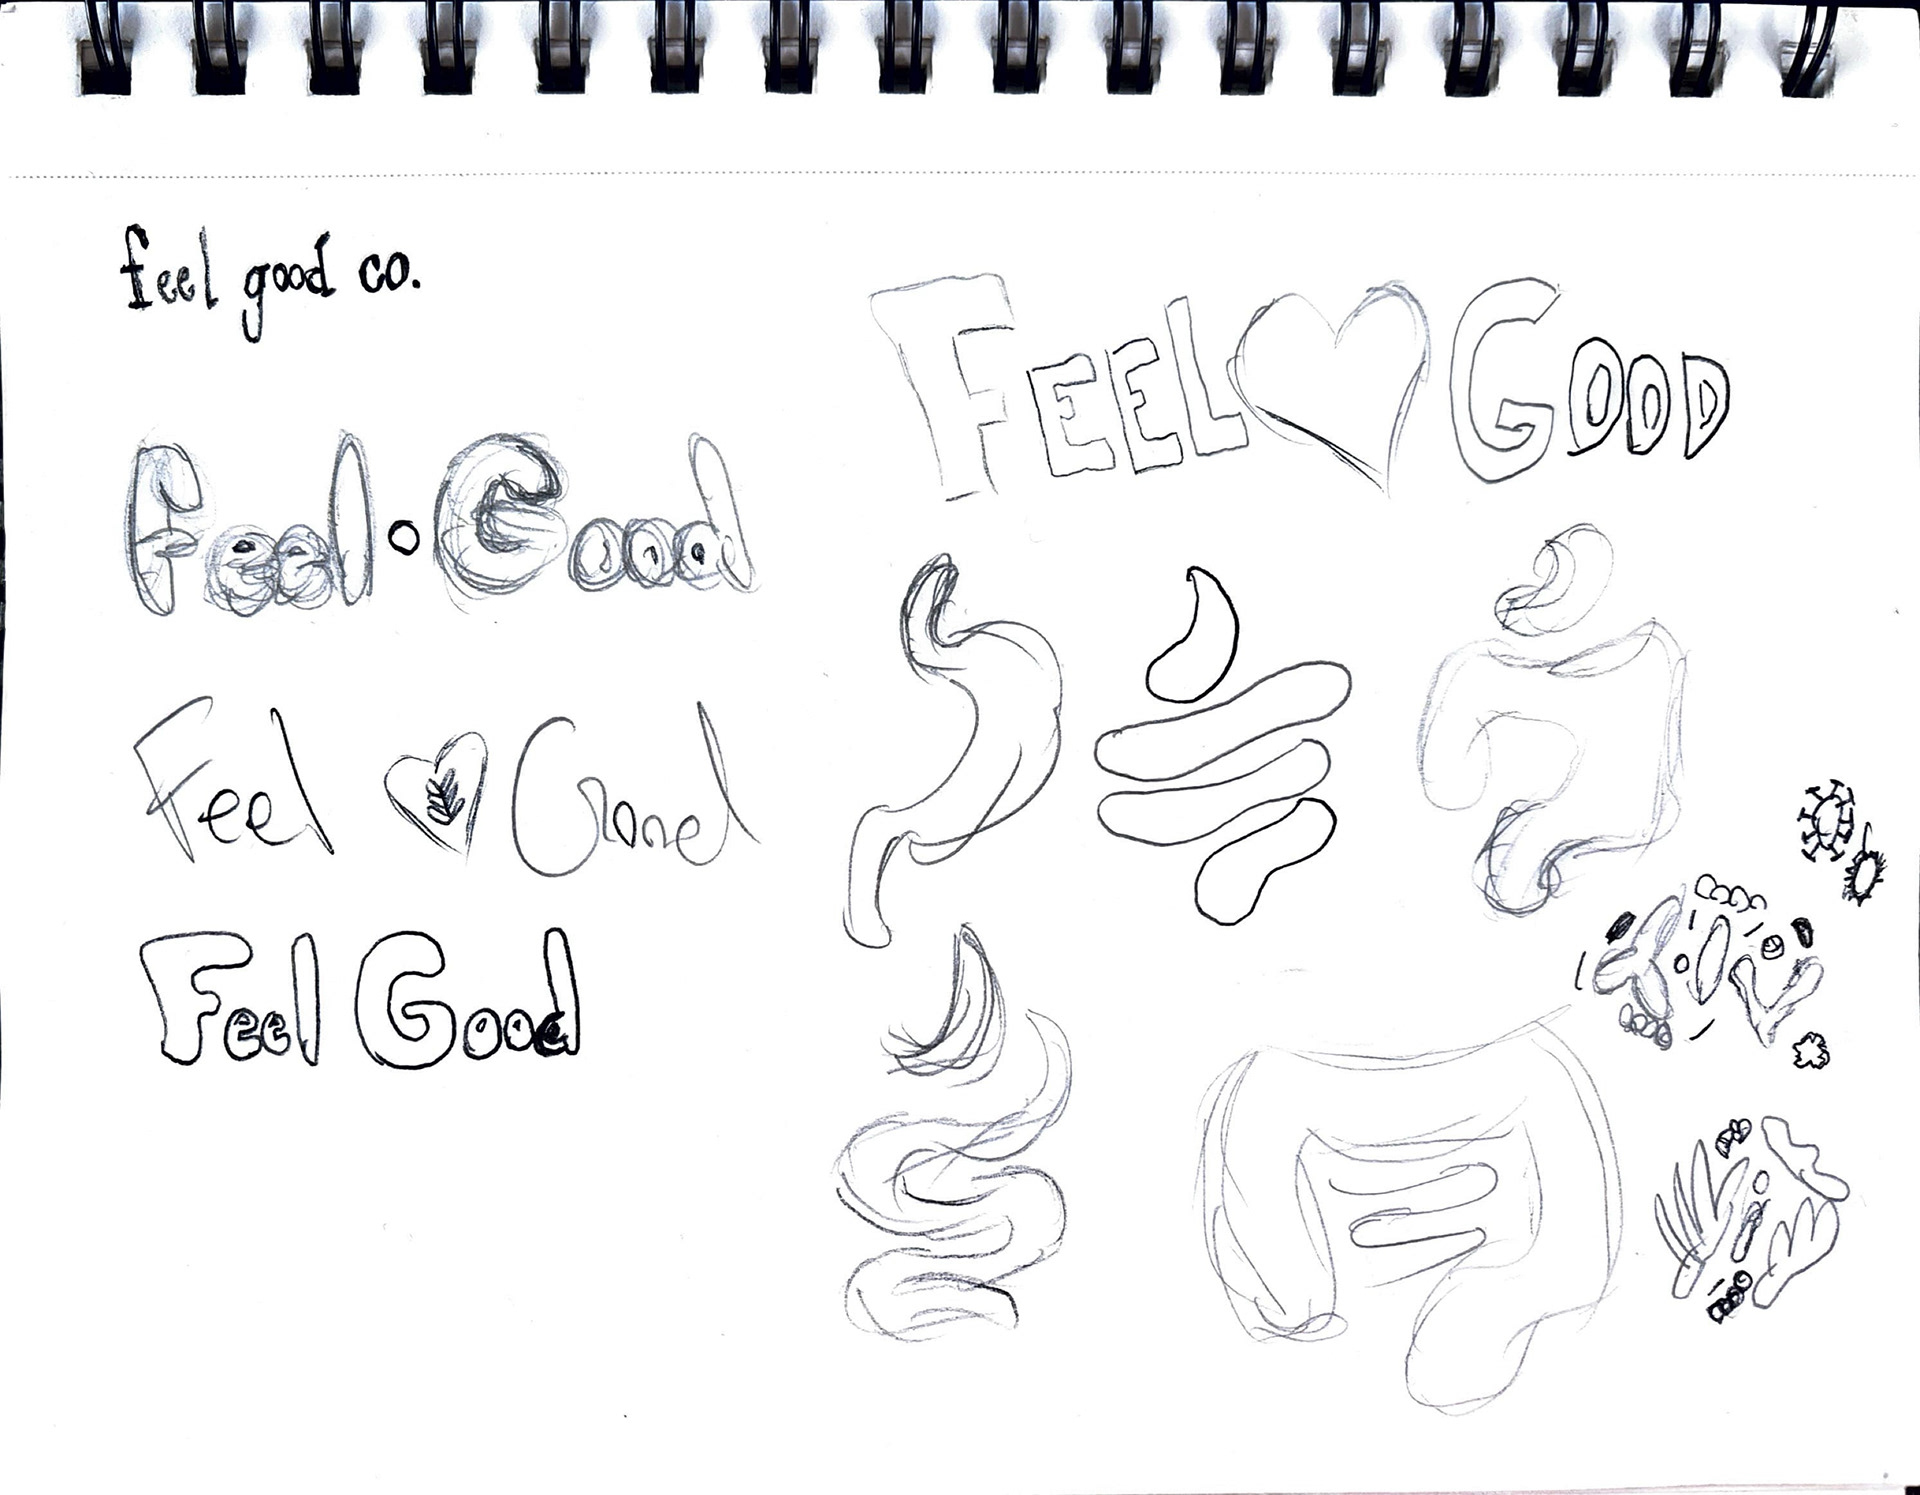 feel good co.
FEEL GOOD
Feel Good
Feel Good
Feel Good